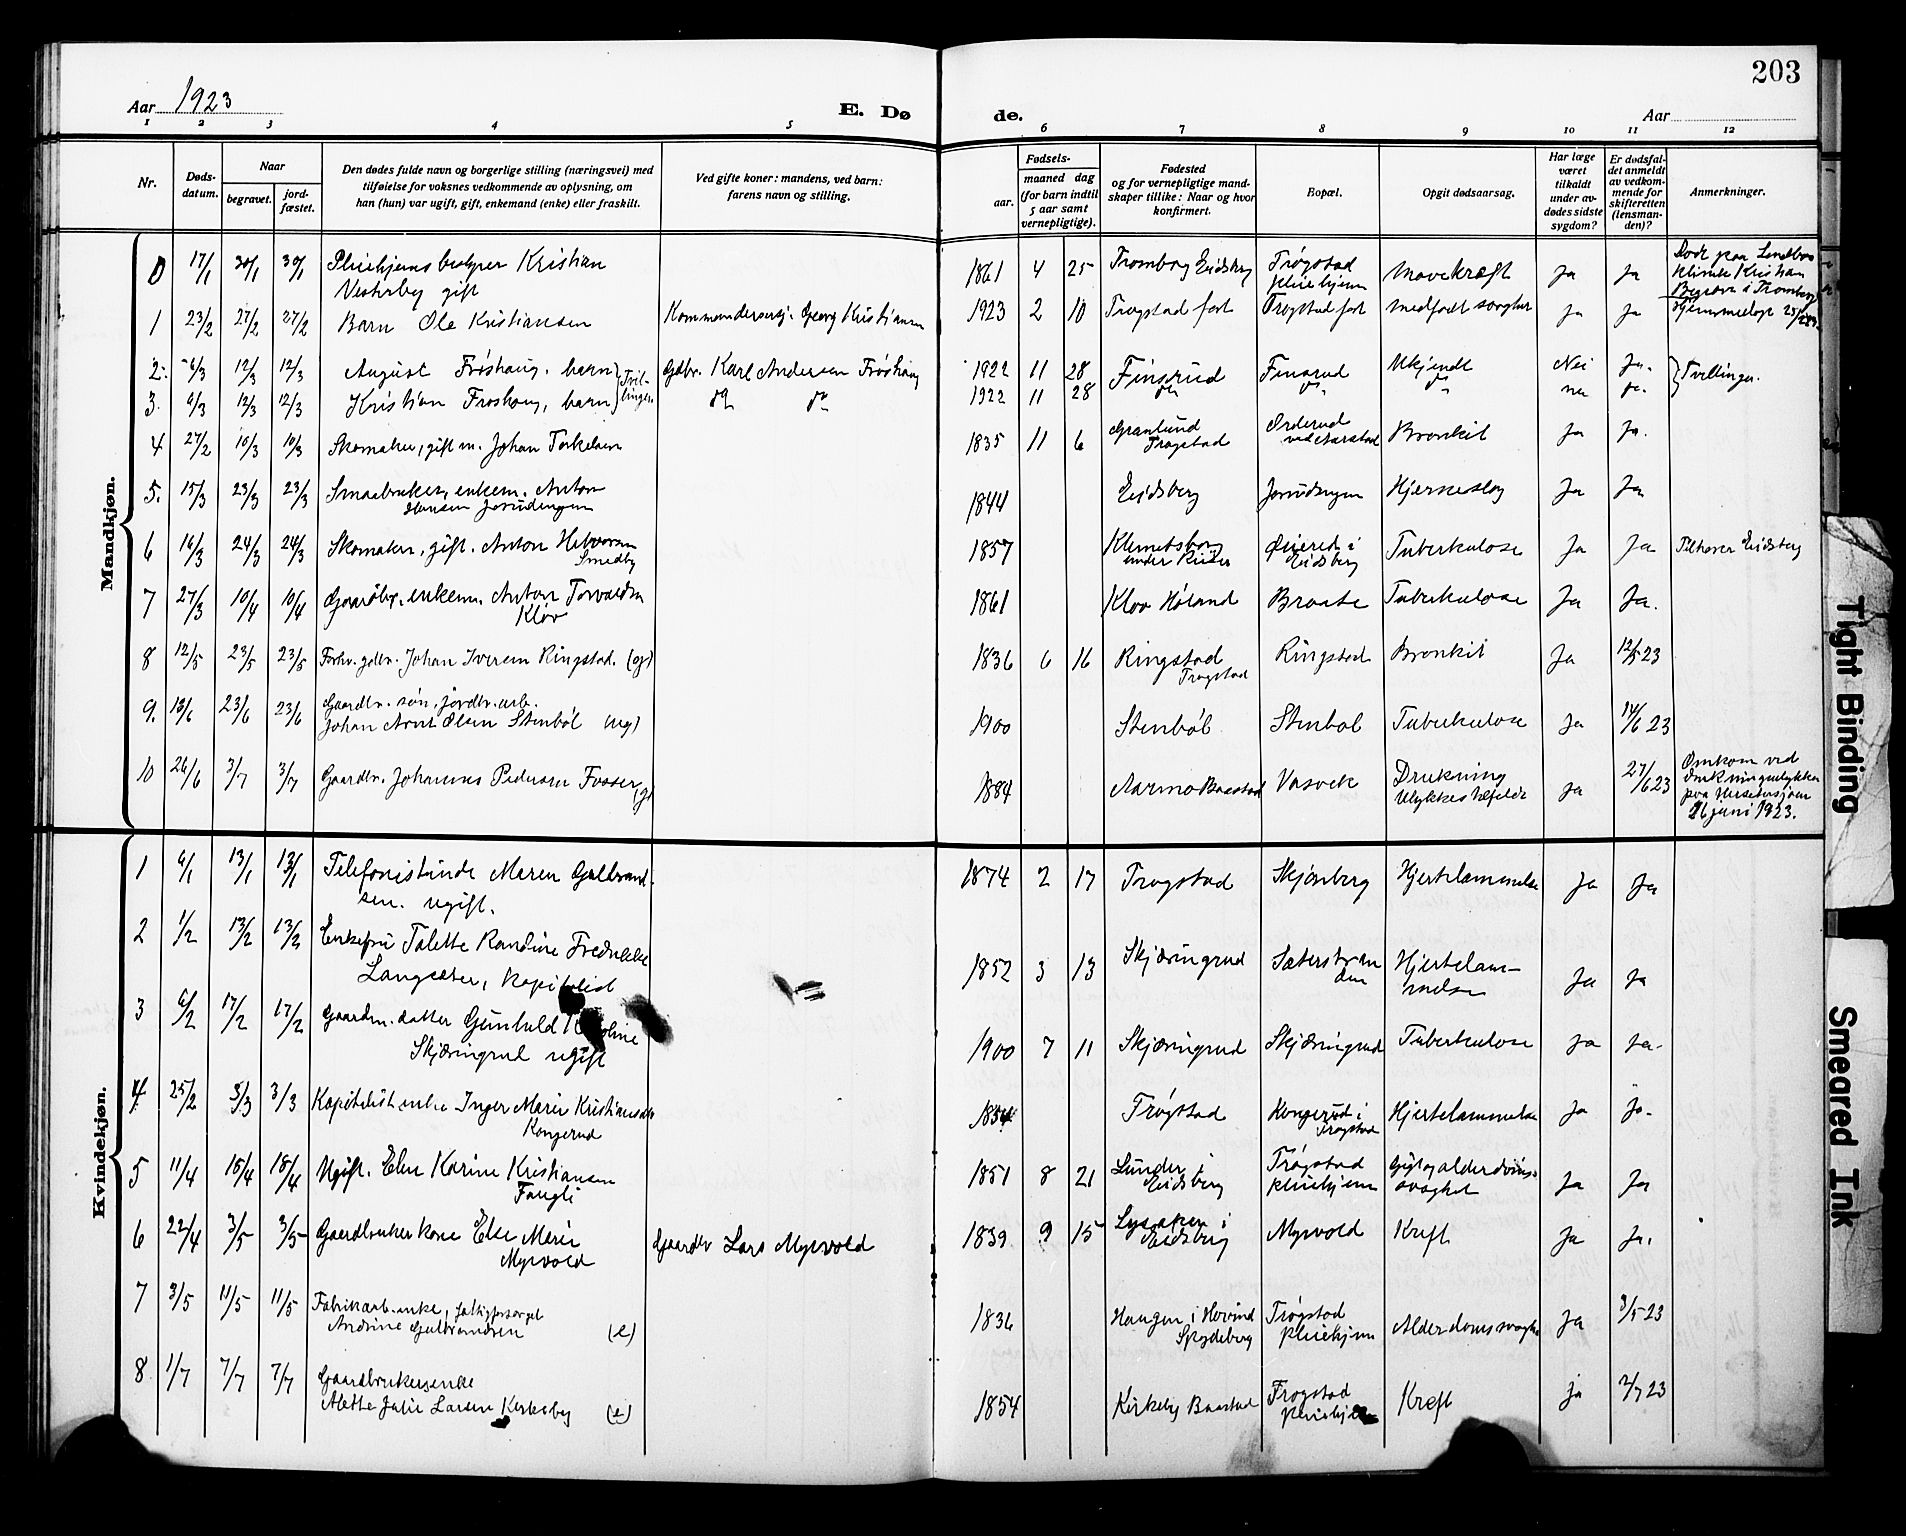 203
Aar 1923
E. Dø
de.
Aar
1 2 3 4 5 6 7 8 9 10 11 12
Nr.
Døds-
datum.
Naar
begravet.
jord-
fæstet.
Den dødes fulde navn og borgerlige stilling (næringsvei) med
tilføielse for voksnes vedkommende av oplysning, om
han (hun) var ugift, gift, enkemand (enke) eller fraskilt.
Ved gifte koner: mandens, ved barn:
farens navn og stilling.
Fødsels-
aar.
maaned dag
(for barn indtil
5 aar samt
vernepligtige).
Fødested
og for vernepligtige mand-
skaper tillike: Naar og hvor
konfirmert.
Bopæl.
Opgit dødsaarsag.
Har læge
været
tilkaldt
under av-
dødes sidste
sygdom?
Er dødsfal-
det anmeldt
av vedkom-
mende for
skifteretten
(lensman-
den)?
Anmerkninger.
Mandkjøn.
0 17/1 30/1 30/1 Pleiehjemsbestyrer Kristian
Vesterby gift
1861 4 25 Tromborg Eidsberg Trøgstad
pleiehjem
Mavekræft Ja Ja
1 23/2 27/2 27/2 Barn Ole Kristiansen Georg Kristiansen 1923 2 10 Trøgstad fort Trøgstad fort medfødt svaghet Ja Ja
2. 6/3 12/3 12/3 August Frøshaug, barn Gdbr. Karl Andersen Frøshaug 1922 11 28 Finsrud Finsrud Ukjendt Nei Ja. Tvillinger.
3. 6/3 12/3 12/3 Kristian Frøshaug, barn Tvil-
linger. do do 1922 11 28 do do do nei Ja.
4 27/2 10/3 10/3 Skomaker, gift m. Johan Torkelsen 1835 11 6 Granlund
Trøgstad Bronkit Ja Ja.
5. 15/3 23/3 23/3 Smaabruker, enkem. Anton
Hansen Jørudengen 1844 Eidsberg Jørudengen Hjerneslag Ja Ja
6 16/3 24/3 24/3 Skomaker, gift. Anton Halvorsen
Smedby 1857 Klemetsborg Eidsberg Tuberkulose Ja Ja Tilhører Eidsberg
7 27/3 10/4 10/4 Gaardbr. enkem. Anton Torvaldsen
Kløv 1861 Kløv Høland Braate Tuberkulose Ja Ja.
8 12/5 23/5 23/5 Forhv. gdbr. Johan Iversen Ringstad. (g) 1836 6 16 Ringstad
Trøgstad Ringstad Bronkit Ja 12/5 23
9. 13/6 23/6 23/6 Gaardbr. søn, jordbr. arb.
Johan Arnt Olsen Stenbøl (ug) 1900 Stenbøl Stenbøl Tuberkulose Ja 14/6 23
10 26/6 3/7 3/7 Gaardbr. Johannes Pedersen Fosser (g) 1884 Aarmo Baastad Vasvek Drukning
Ulykkestilfælde Ja 27/6 23 Omkom ved
drukningsulykken
paa
26 juni 1923.
Kvindekjøn.
1 6/1 13/1 13/1 Telefonistinde Maren Gulbrand-
sen. ugift. 1874 2 17 Trøgstad Skjønberg Hjertelammelse Ja Ja
2 1/2 13/2 13/2 Enkefru Talette Randine Fredrikke
Langsæter, kapitalist 1852 3 13 Skjæringrud Sæterstran
den Hjertelam-
melse Ja Ja
3 6/2 17/2 17/2 Gaardm. datter Gunhild
Skjæringrud ugift 1900 7 11 Skjæringrud Skjæringrud Tuberkulose Ja Ja.
4 25/2 3/3 3/3 Kapitalist enke Inger Marie Kristiansdtr
Kongerud 1854 Trøgstad Kongerud i
Trøgstad Hjertelammelse Ja Ja.
5 11/4 18/4 18/4 Ugift. Elen Karine Kristiansen
Fangli 1851 8 21 Lunder i
Eidsberg Trøgstad
pleiehjem Gigt og alderdoms-
svaghet Ja Ja
6 22/4 3/5 3/5 Gaardbruker kone Else Marie
Myrvold Gaardbr Lars Myrvold 1839 9 15 Lysaker i
Eidsberg Myrvold Kræft Ja Ja.
7 3/5 11/5 11/5 Fabrikarb. enke, fattigforsørget
Andrine Gulbrandsen (e) 1836 Haugen i Hovind
Spydeberg Trøgstad
pleiehjem Alderdomssvaghet Ja 3/5 23
8 1/7 7/7 7/7 Gaardbrukersenke
Alette Julie Larsen Kirkeby (e) 1854 Kirkeby Baastad Trøgstad
pleiehjem Kræft ja 2/7 23
Tight Binding
Smeared Ink